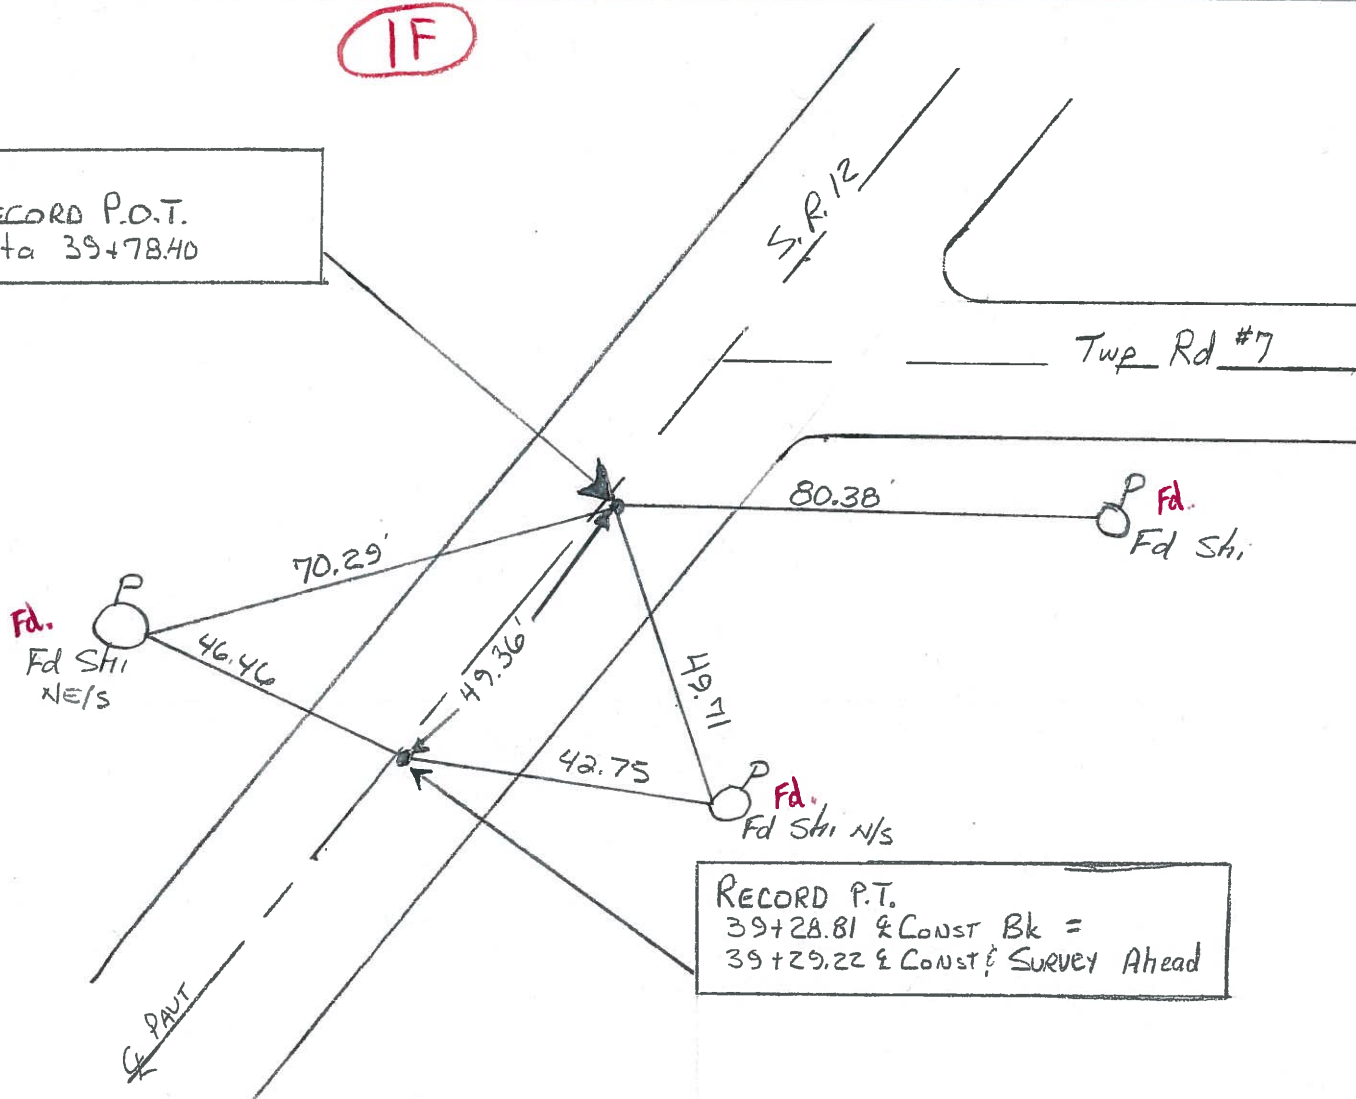 1F
ECORD P.O.T.
ta 39+78.40
S.R. 12
Twp Rd #7
80.38'
Fd.
Fd Shi
70.29'
Fd.
Fd Shi
NE/S
46.46
49.36'
49.71
42.75
Fd.
Fd Shi N/S
RECORD P.T.
39+28.81 ℄ CONST Bk =
39+29.22 ℄ CONST & SURVEY Ahead
℄ PAVT